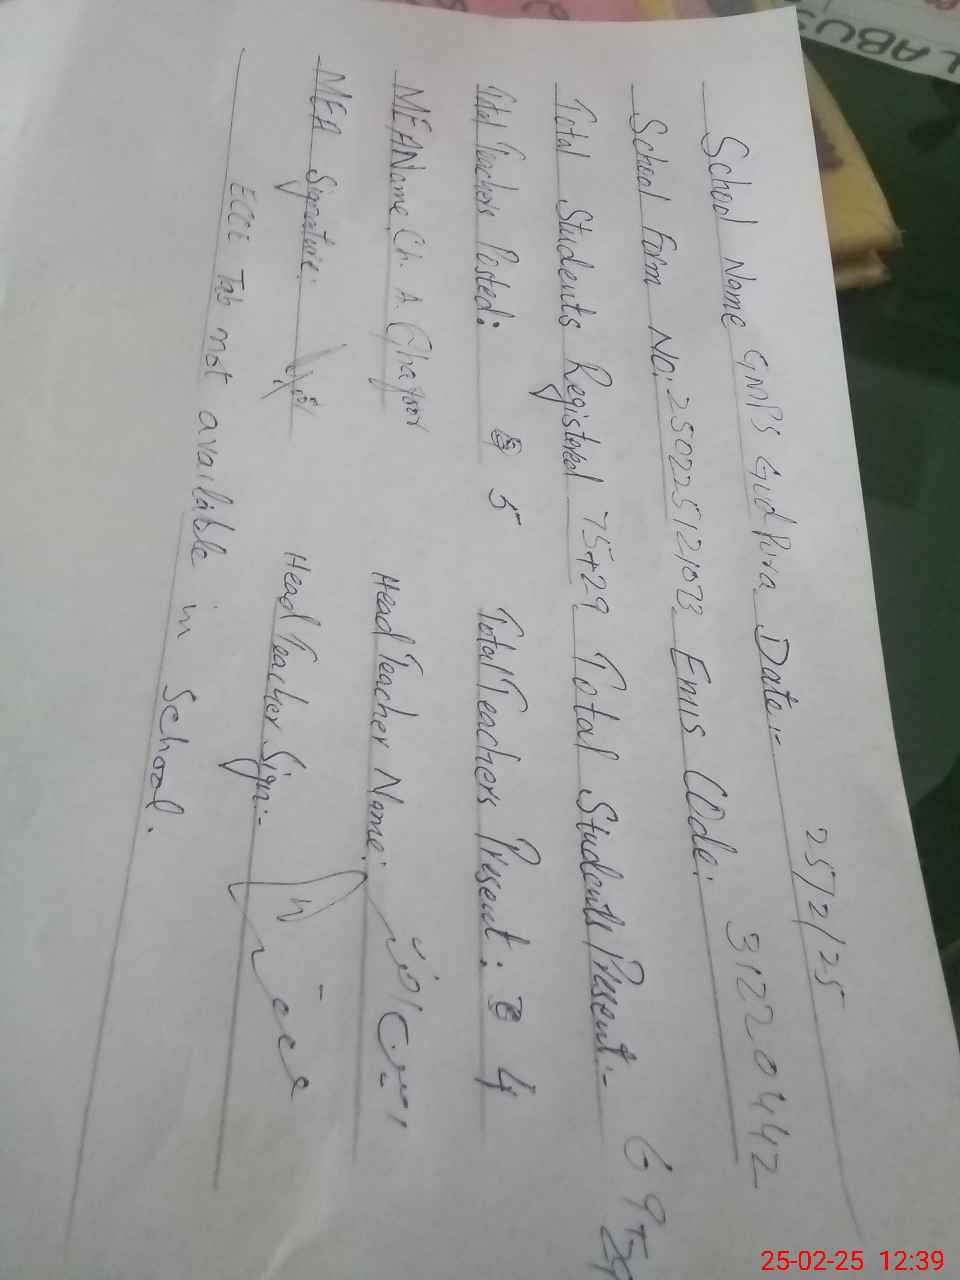 School Name GMPS Gud Pura Date:- 25/2/25
School Form No: 250225121073 Emis Code: 31220442
Total Students Registered 75+29 Total Students Present:- 69+29
Total Teachers Posted: 5 Total Teachers Present: 4
MEA Name Ch. A Ghafoor Head Teacher Name:
MEA Signature: Head Teacher Sign:-
ECCE Tab not available in School.
LABUS
25-02-25 12:39